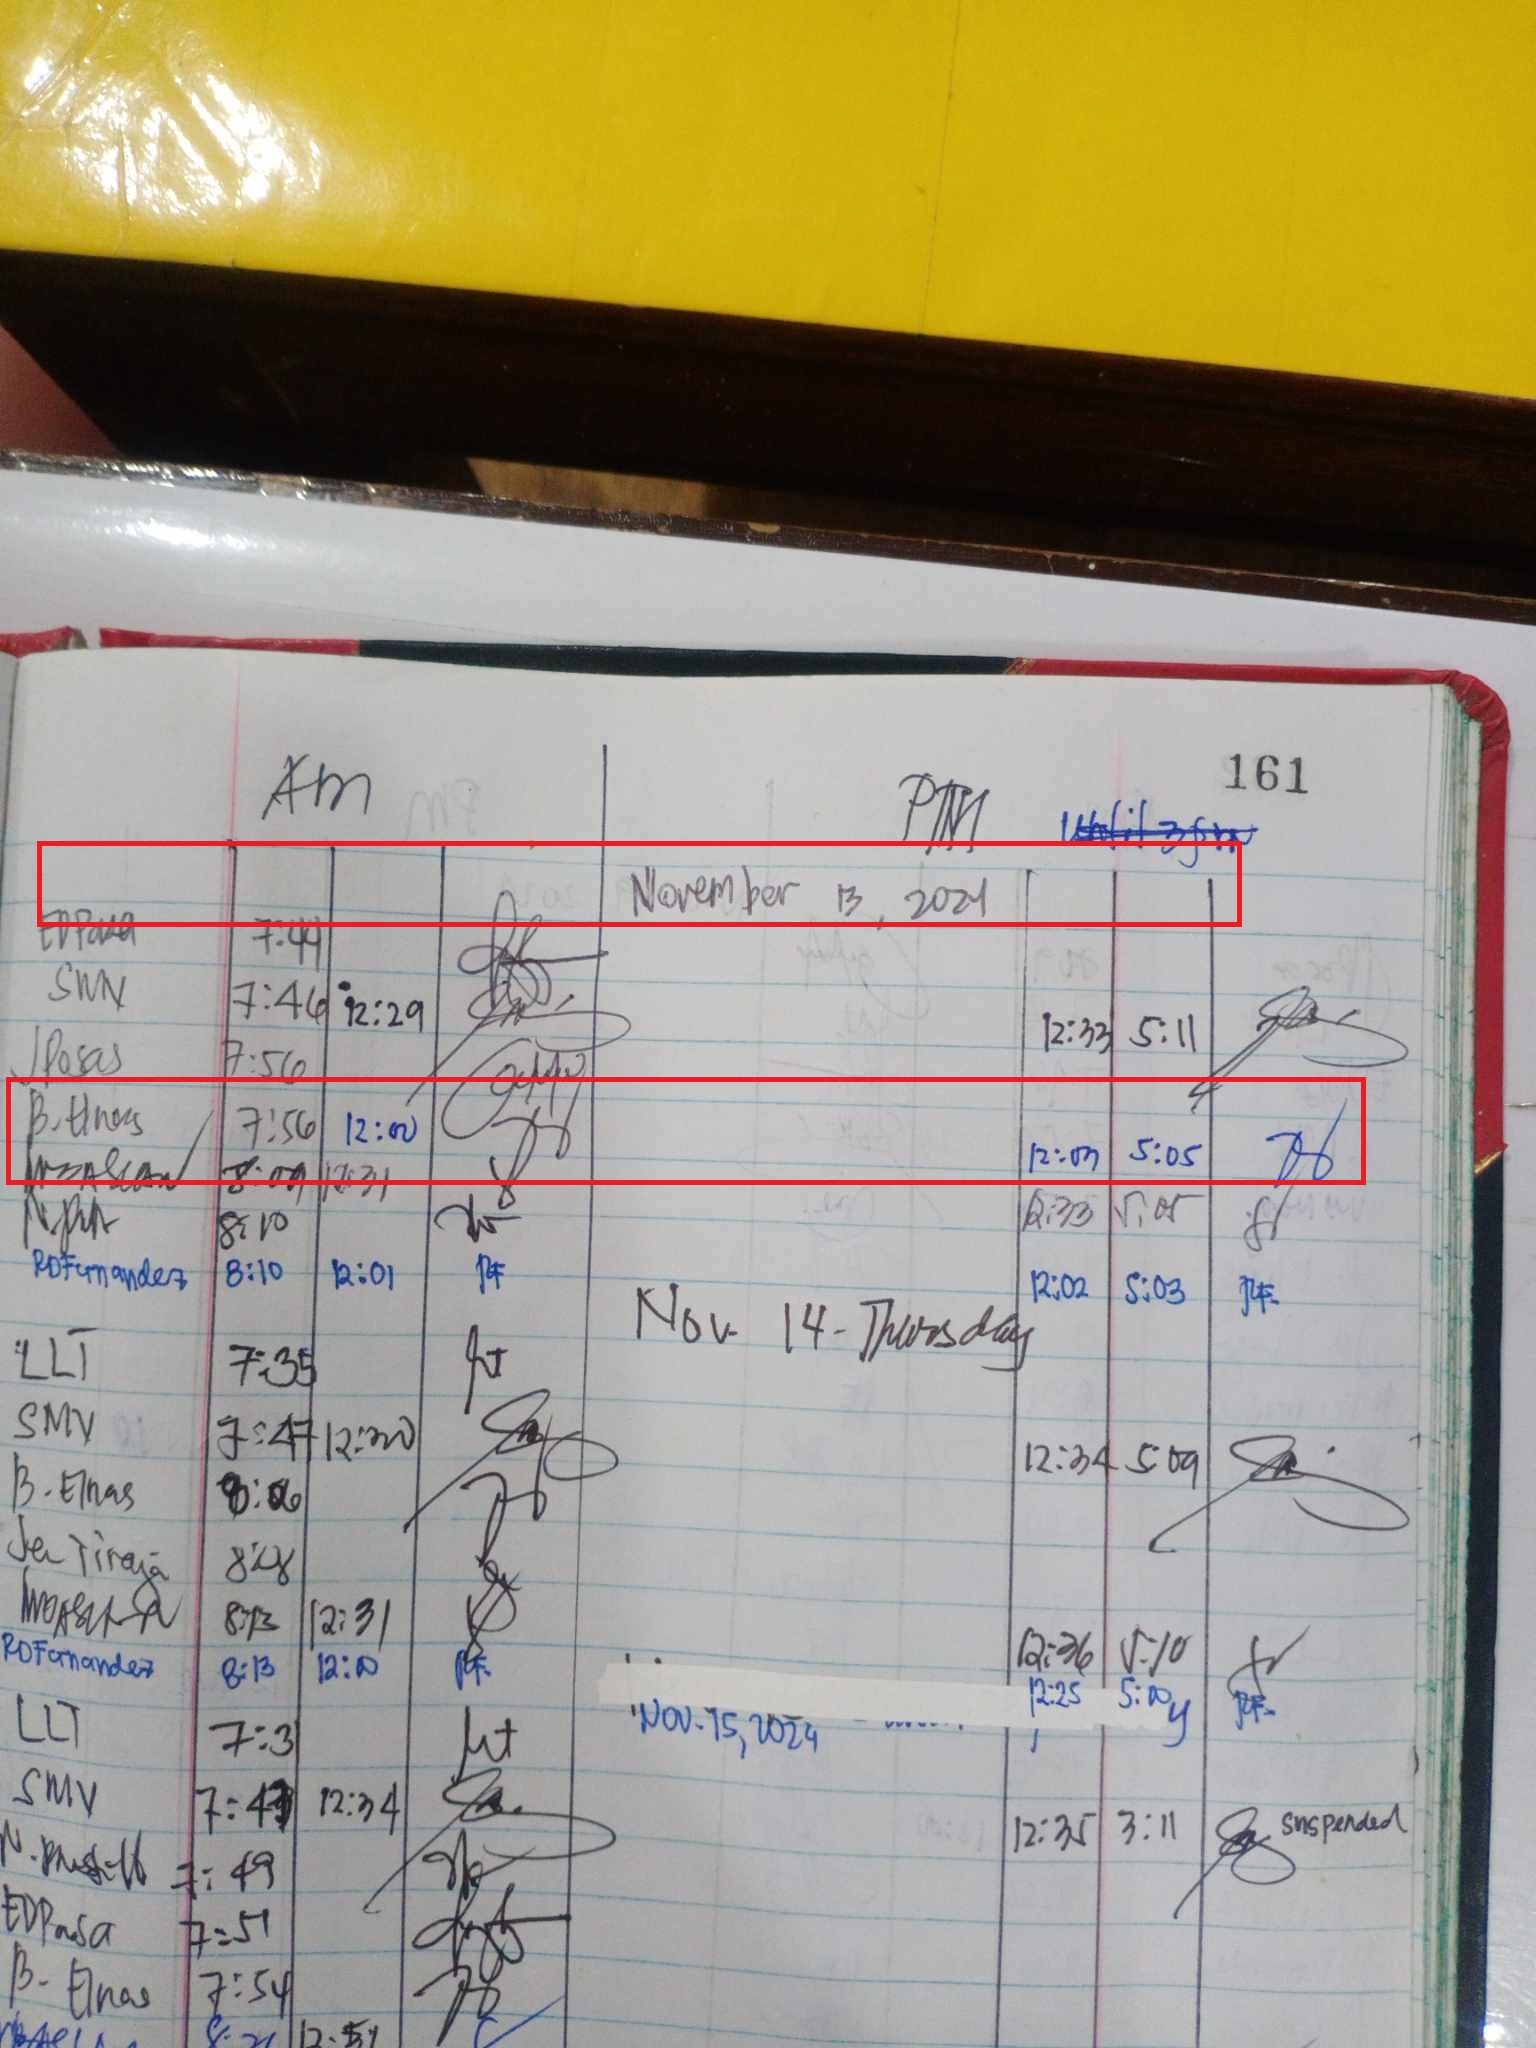 161
AM PM
November 13, 2024
EDPasa 7:44
SMV 7:46 12:29 12:33 5:11
JPosas 7:56
B. Elnas 7:56 12:00 12:03 5:05
8:09 12:31 12:33 5:05
8:10
RDFernandez 8:10 12:01 RF. 12:02 5:03 RF.
Nov. 14 - Thursday
LLT 7:35
SMV 7:47 12:30 12:34 5:09
B. Elnas 8:06
8:08
8:13 12:31 12:36 5:10
RDFernandez 8:13 12:00 RF. 12:25 5:00 RF.
Nov. 15, 2024
LLT 7:31
SMV 12:34 12:35 3:11 suspended
7:49
EDPasa 7:51
B. Elnas 7:54